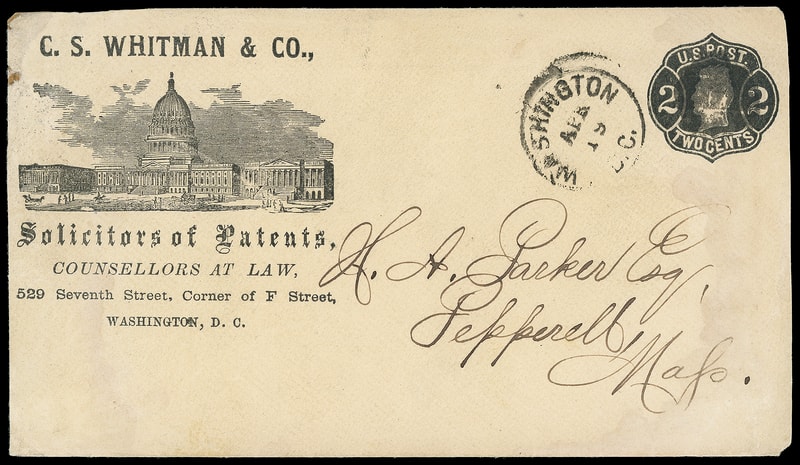 C. S. WHITMAN & CO.,
Solicitors of Patents,
COUNSELLORS AT LAW,
529 Seventh Street, Corner of F Street,
WASHINGTON, D. C.
WASHINGTON D.C.
APR
19
U.S. POST.
2 2
TWO CENTS
H. A. Parker Esq,
Pepperell
Mass.